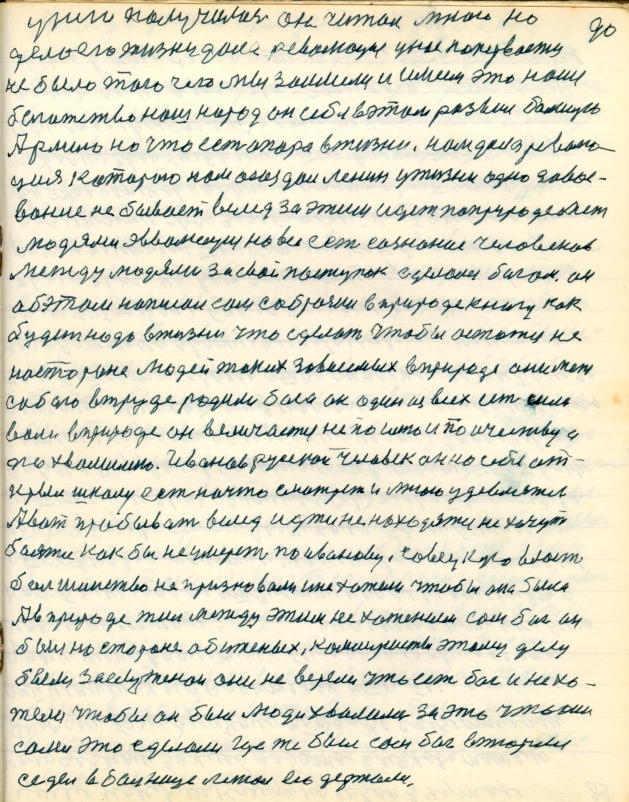 90
получилось он читал много но
дело его жизни дала революция у нас
не было этого чего мы зоимели и имеем это наши
богатство наш народ он себя в этом развил
Армию но что ест опора в жизни. нам дала револю-
ция которую нам создал Ленин у жизни одно завое-
вание не бывает вслед за этим идет по природе
людями эволюция на все ест сознание человеков
между людями за свой поступок сделался богом. он
об этом написал сам собрания в природе книгу как
будет надо в жизни что сделат чтобы остатся не
на стороне людей таких зависимых в природе они
собою в труде родили бога он один из всех ест
воли в природе он величается не по имю и по отчеству а
по фамилию. Иванов руской человек он на себе от-
крыл школу ест на что смотрет и многа удевлятся
А вот пробыват вслед идти не находятся не хочут
боятся как бы не умерет по иванову. совецкую власт
болшинство не признавали и не хотели чтобы она была
А в природе жил между этим не хотением сам бог он
был на стороне обиженых, комунисты этому делу
были они не верели что ест бог и не хо-
тели чтобы он был люди хвалили за это что они
сами это сделали где же был сам бог в тюрме
седел в болнице лежал его держали.